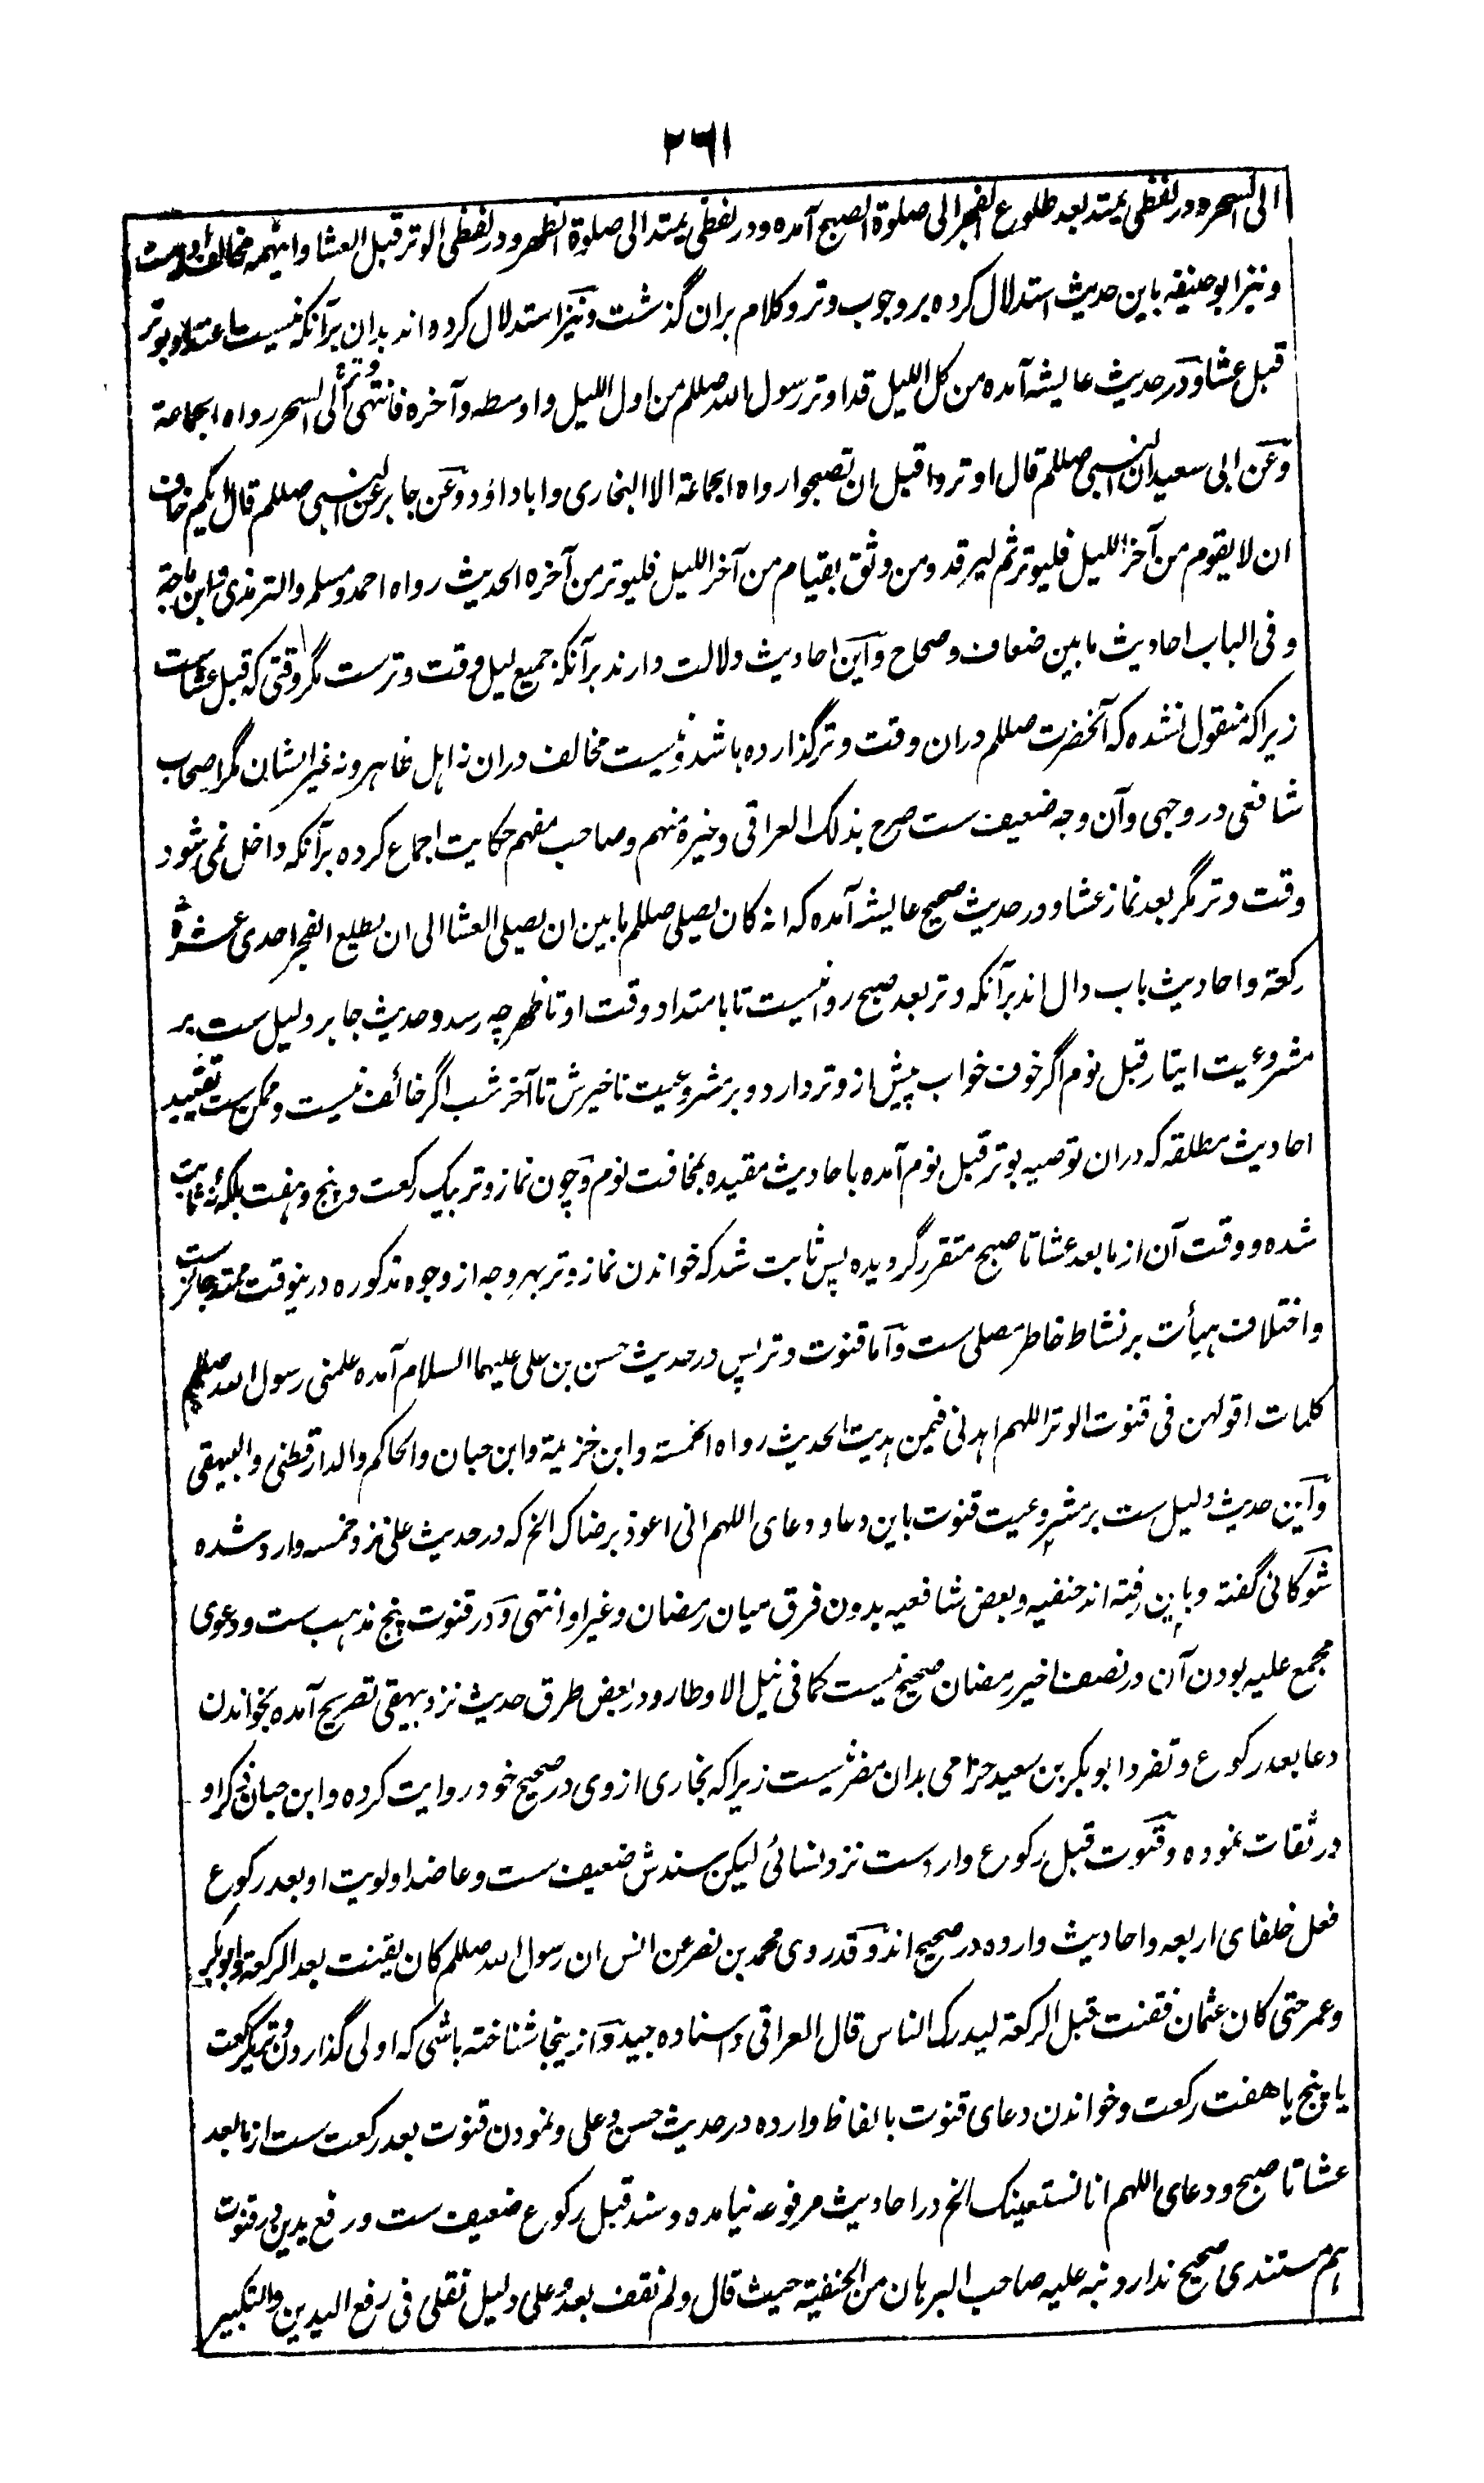 ۲۶۱
الی السحر و در لفظی یمتد بعد طلوع الفجر الی صلوة الصبح آمده و در لفظی یمتد الی صلوة الظهر و در لفظی الوتر قبل العشا و اینهمه مخالف اوست
و نیز ابو حنیفه باین حدیث استدلال کرده بر وجوب وتر و کلام بران گذشت و نیز استدلال کرده اند بدان برآنکه نیست اعتداد بوتر
قبل عشا و در حدیث عایشه آمده من کل اللیل قد اوتر رسول الله صللم من اول اللیل و اوسطه و آخره فانتهی وتره الی السحر رواه الجماعة
و عن ابی سعید ان النبی صللم قال اوتروا قبل ان تصبحوا رواه الجماعة الا البخاری و ابا داؤد و عن جابر عن النبی صللم قال ایکم خاف
ان لا یقوم من آخر اللیل فلیوتر ثم لیرقد و من وثق بقیام من آخر اللیل فلیوتر من آخره الحدیث رواه احمد و مسلم و الترمذی و ابن ماجة
و فی الباب احادیث ما بین ضعاف و صحاح و این احادیث دلالت دارند برآنکه جمیع لیل وقت وترست مگر وقتی که قبل عشاست
زیرا که منقول نشده که آنحضرت صللم دران وقت وتر گذارده باشد و نیست مخالف دران نه اهل ظاهر و نه غیر ایشان مگر اصحاب
شافعی در وجهی و آن وجه ضعیف ست صرح بذلک العراقی و غیره منهم و صاحب مفهم حکایت اجماع کرده برآنکه داخل نمی شود
وقت وتر مگر بعد نماز عشا و در حدیث صحیح عایشه آمده که انه کان یصلی صللم ما بین ان یصلی العشا الی ان یطلع الفجر احدی عشرة
رکعة و احادیث باب دال اند برآنکه وتر بعد صبح روا نیست تا بامتداد وقت او تا ظهر چه رسد و حدیث جابر دلیل ست بر
مشروعیت ایتار قبل نوم اگر خوف خواب پیش از وتر دارد و بر مشروعیت تاخیرش تا آخر شب اگر خائف نیست و ممکن ست تقیید
احادیث مطلقه که دران توصیه بوتر قبل نوم آمده با حادیث مقیده بمخافت نوم و چون نماز وتر بیک رکعت و پنج و هفت بلکه نه ثابت
شده و وقت آن از ما بعد عشا تا صبح متقرر گردیده پس ثابت شد که خواندن نماز وتر بهر وجه از وجوه مذکوره درینوقت ممتد جائز ست
و اختلاف هیأت بر نشاط خاطر مصلی ست و اما قنوت وتر پس در حدیث حسن بن علی علیهما السلام آمده علمنی رسول الله صللم
کلمات اقولهن فی قنوت الوتر اللهم اهدنی فیمن هدیت الحدیث رواه الخمسة و ابن خزیمة و ابن حبان و الحاکم و الدارقطنی و البیهقی
و این حدیث دلیل ست بر مشروعیت قنوت باین دعا و دعای اللهم انی اعوذ برضاک الخ که در حدیث علی نزد خمسه وارد شده
شوکانی گفته و باین رفته اند حنفیه و بعض شافعیه بدون فرق میان رمضان و غیر او انتهی و در قنوت پنج مذهب ست و دعوی
مجمع علیه بودن آن در نصف اخیر رمضان صحیح نیست کما فی نیل الاوطار و در بعض طرق حدیث نزد بیهقی تصریح آمده بخواندن
دعا بعد رکوع و تفرد ابوبکر بن سعید حزامی بدان مضر نیست زیرا که بخاری از وی در صحیح خود روایت کرده و ابن حبان ذکر او
در ثقات نموده و قنوت قبل رکوع واردست نزد نسائی لیکن سندش ضعیف ست و عاضد اولویت او بعد رکوع
فعل خلفای اربعه و احادیث وارده در صحیح اند و قد روی محمد بن نصر عن انس ان رسول الله صللم کان یقنت بعد الرکعة و ابوبکر
و عمر حتی کان عثمان فقنت قبل الرکعة لیدرک الناس قال العراقی و اسناده جید و ازینجا شناخته باشی که اولی گذاردن وتر بیک رکعت
یا پنج یا هفت رکعت و خواندن دعای قنوت بالفاظ وارده در حدیث حسن و علی و نمودن قنوت بعد رکعت ست از ما بعد
عشا تا صبح و دعای اللهم انا نستعینک الخ در احادیث مرفوعه نیامده و سند قبل رکوع ضعیف ست و رفع یدین در قنوت
هم مستندی صحیح ندارد و نبه علیه صاحب البرهان من الحنفیة حیث قال و لم نقف بعد علی دلیل نقلی فی رفع الیدین و التکبیر